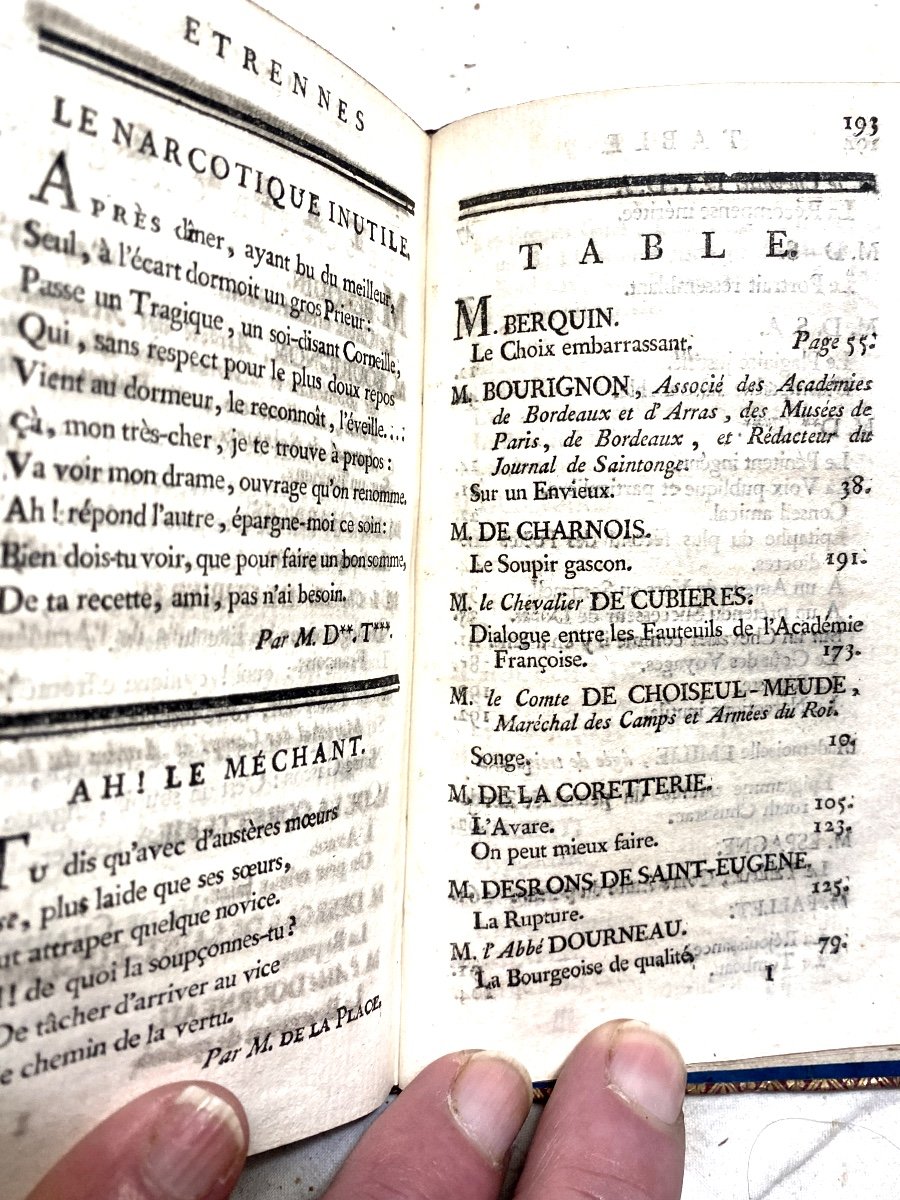 ETRENNES
LE NARCOTIQUE INUTILE.
APRÈS dîner, ayant bu du meilleur,
Seul, à l'écart dormoit un gros Prieur:
Passe un Tragique, un soi-disant Corneille,
Qui, sans respect pour le plus doux repos
Vient au dormeur, le reconnoît, l'éveille...:
Çà, mon très-cher, je te trouve à propos:
Va voir mon drame, ouvrage qu'on renomme.
Ah! répond l'autre, épargne-moi ce soin:
Bien dois-tu voir, que pour faire un bon somme,
De ta recette, ami, pas n'ai besoin.
Par M. D**. T***.
AH! LE MÉCHANT.
TU dis qu'avec d'austères mœurs
plus laide que ses sœurs,
attraper quelque novice.
de quoi la soupçonnes-tu?
De tâcher d'arriver au vice
chemin de la vertu.
Par M. DE LA PLACE.
193
TABLE.
M. BERQUIN.
Le Choix embarrassant. Page 55.
M. BOURIGNON, Associé des Académies
de Bordeaux et d'Arras, des Musées de
Paris, de Bordeaux, et Rédacteur du
Journal de Saintonge.
Sur un Envieux. 38.
M. DE CHARNOIS.
Le Soupir gascon. 191.
M. le Chevalier DE CUBIERES.
Dialogue entre les Fauteuils de l'Académie
Françoise. 173.
M. le Comte DE CHOISEUL-MEUDE,
Maréchal des Camps et Armées du Roi.
Songe. 10.
M. DE LA CORETTERIE.
L'Avare. 105.
On peut mieux faire. 123.
M. DESRONS DE SAINT-EUGENE.
La Rupture. 125.
M. l'Abbé DOURNEAU.
La Bourgeoise de qualité. 79.
I